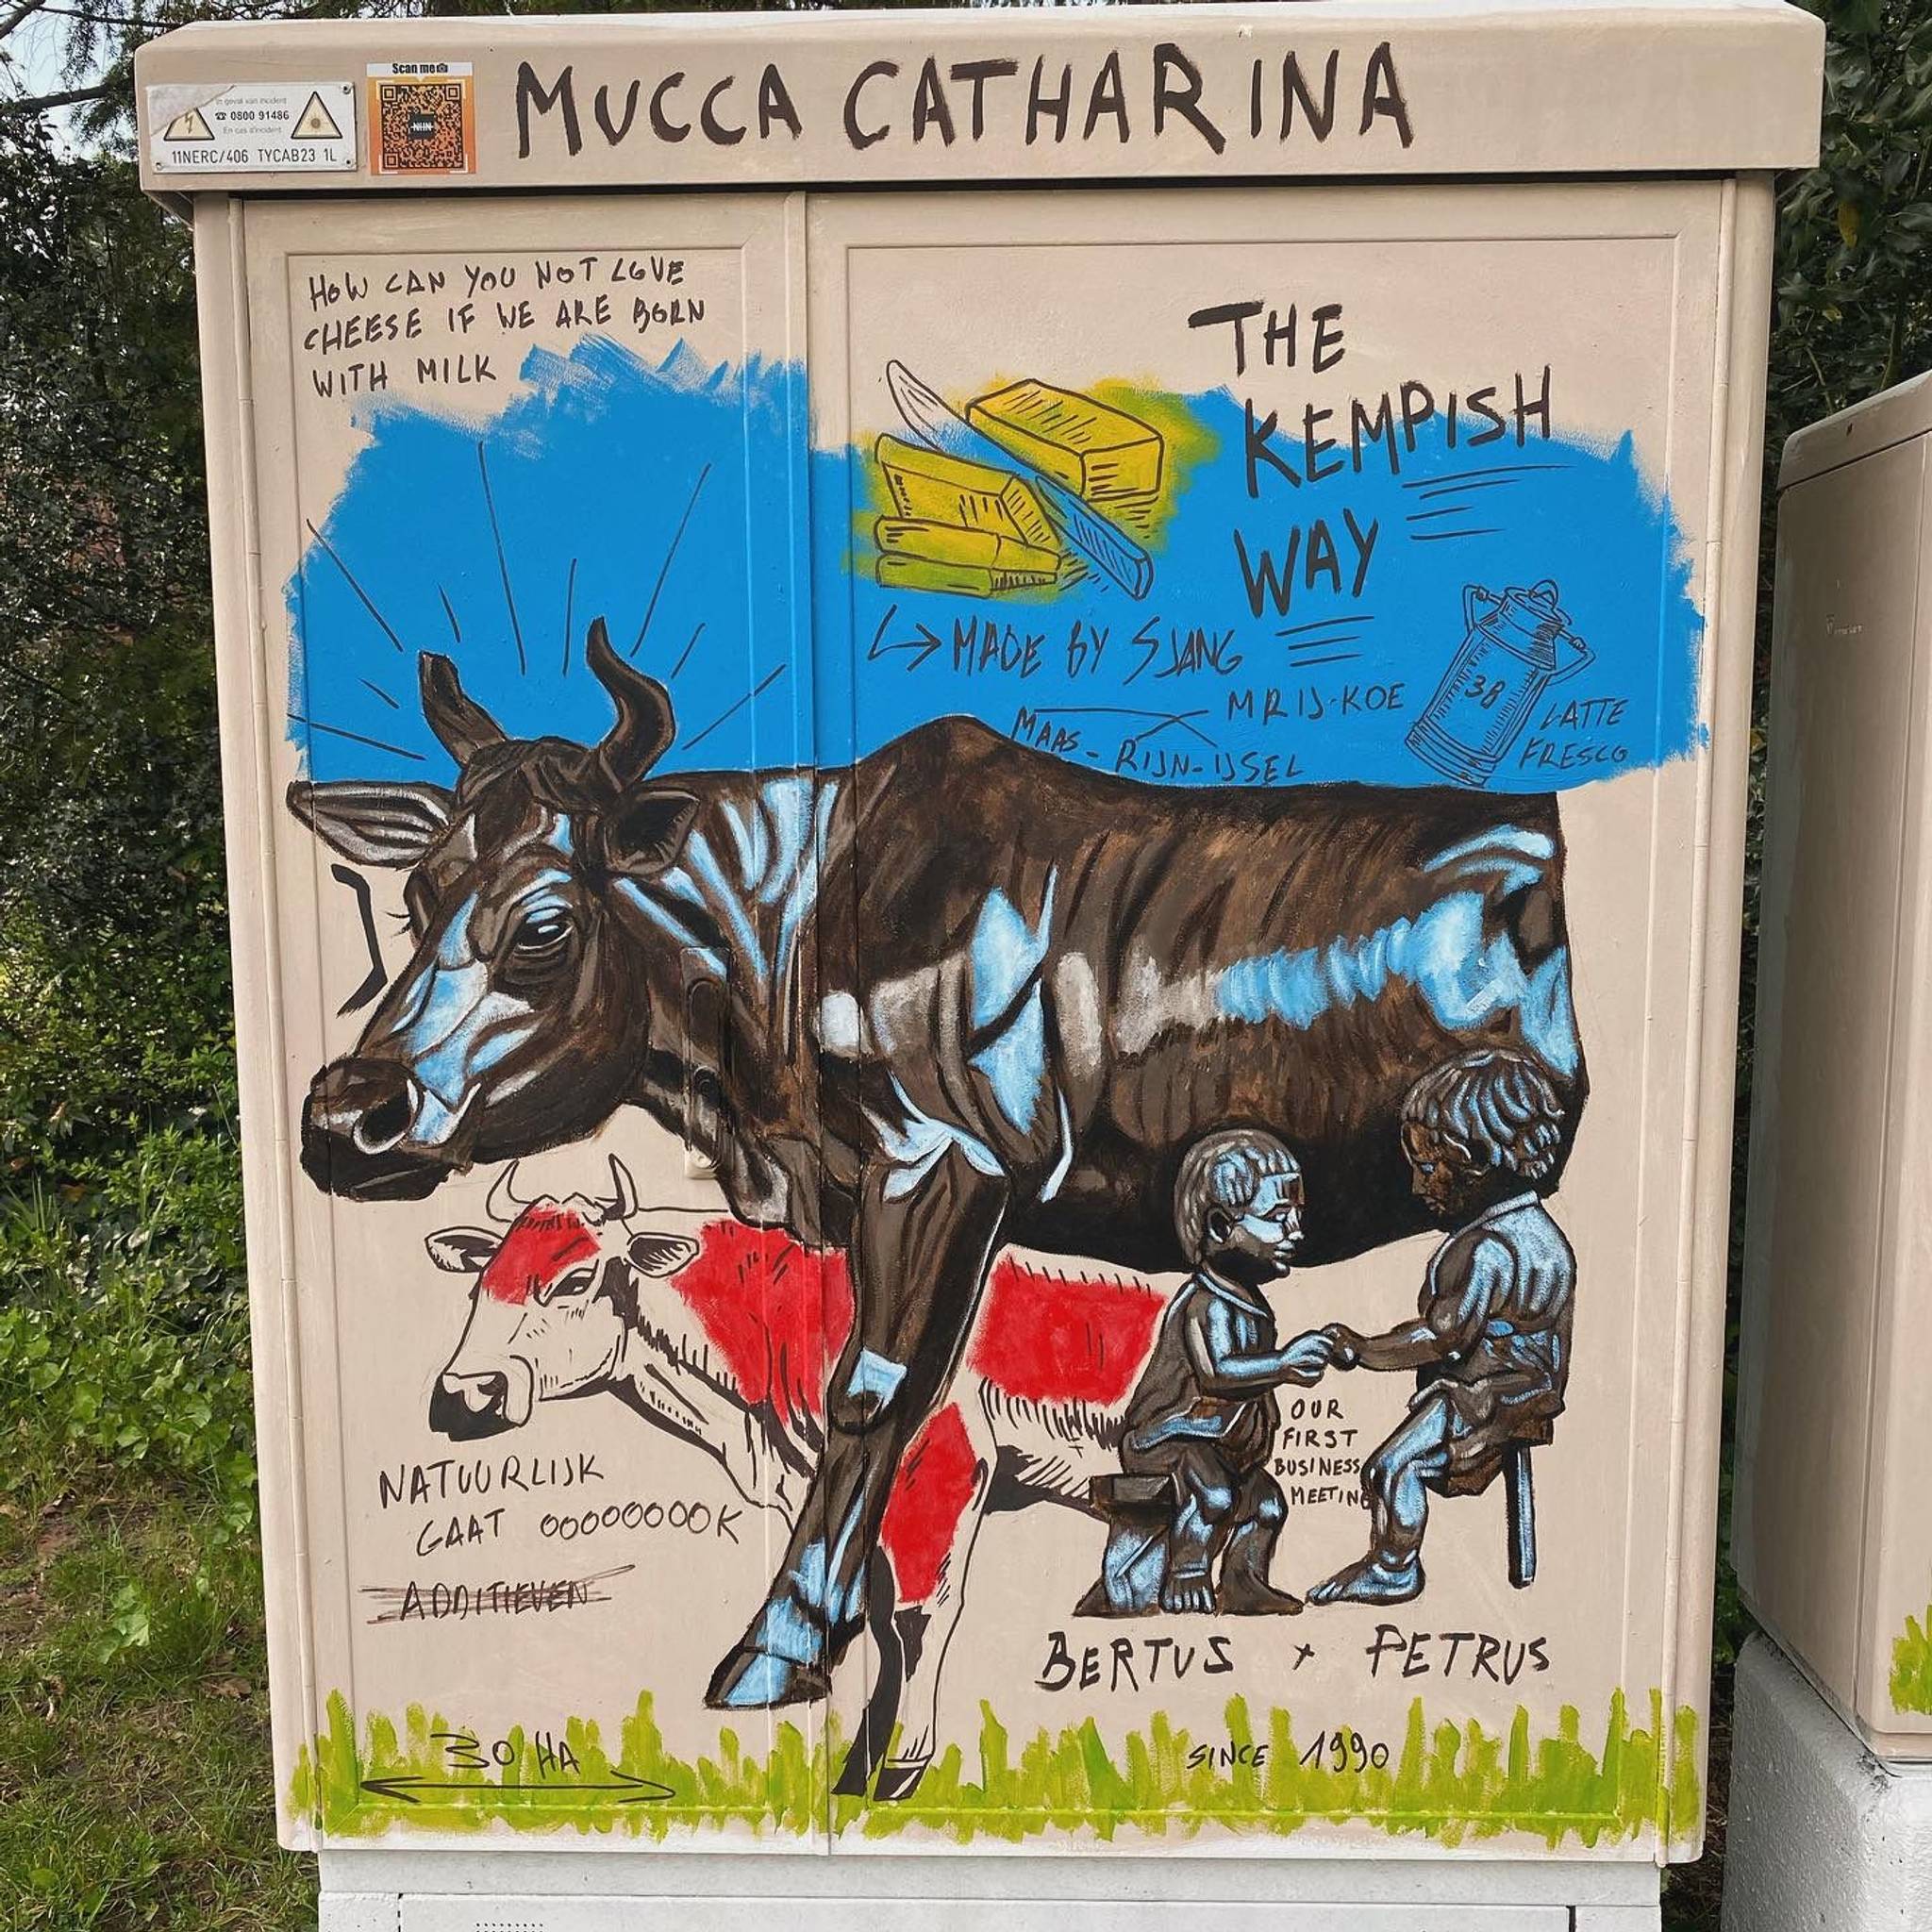 Scan me
In geval van incident
☎ 0800 91486
En cas d'incident
11NERC/406 TYCAB23 1L
NHN
MUCCA CATHARINA
HOW CAN YOU NOT LOVE
CHEESE IF WE ARE BORN
WITH MILK
THE
KEMPISH
WAY
MADE BY SJANG
MRIJ-KOE
MAAS-RIJN-IJSEL
3B
LATTE
FRESCO
OUR
FIRST
BUSINESS
MEETING
NATUURLIJK
GAAT OOOOOOOOK
ADDITIEVEN
BERTUS + PETRUS
30 HA
SINCE 1990